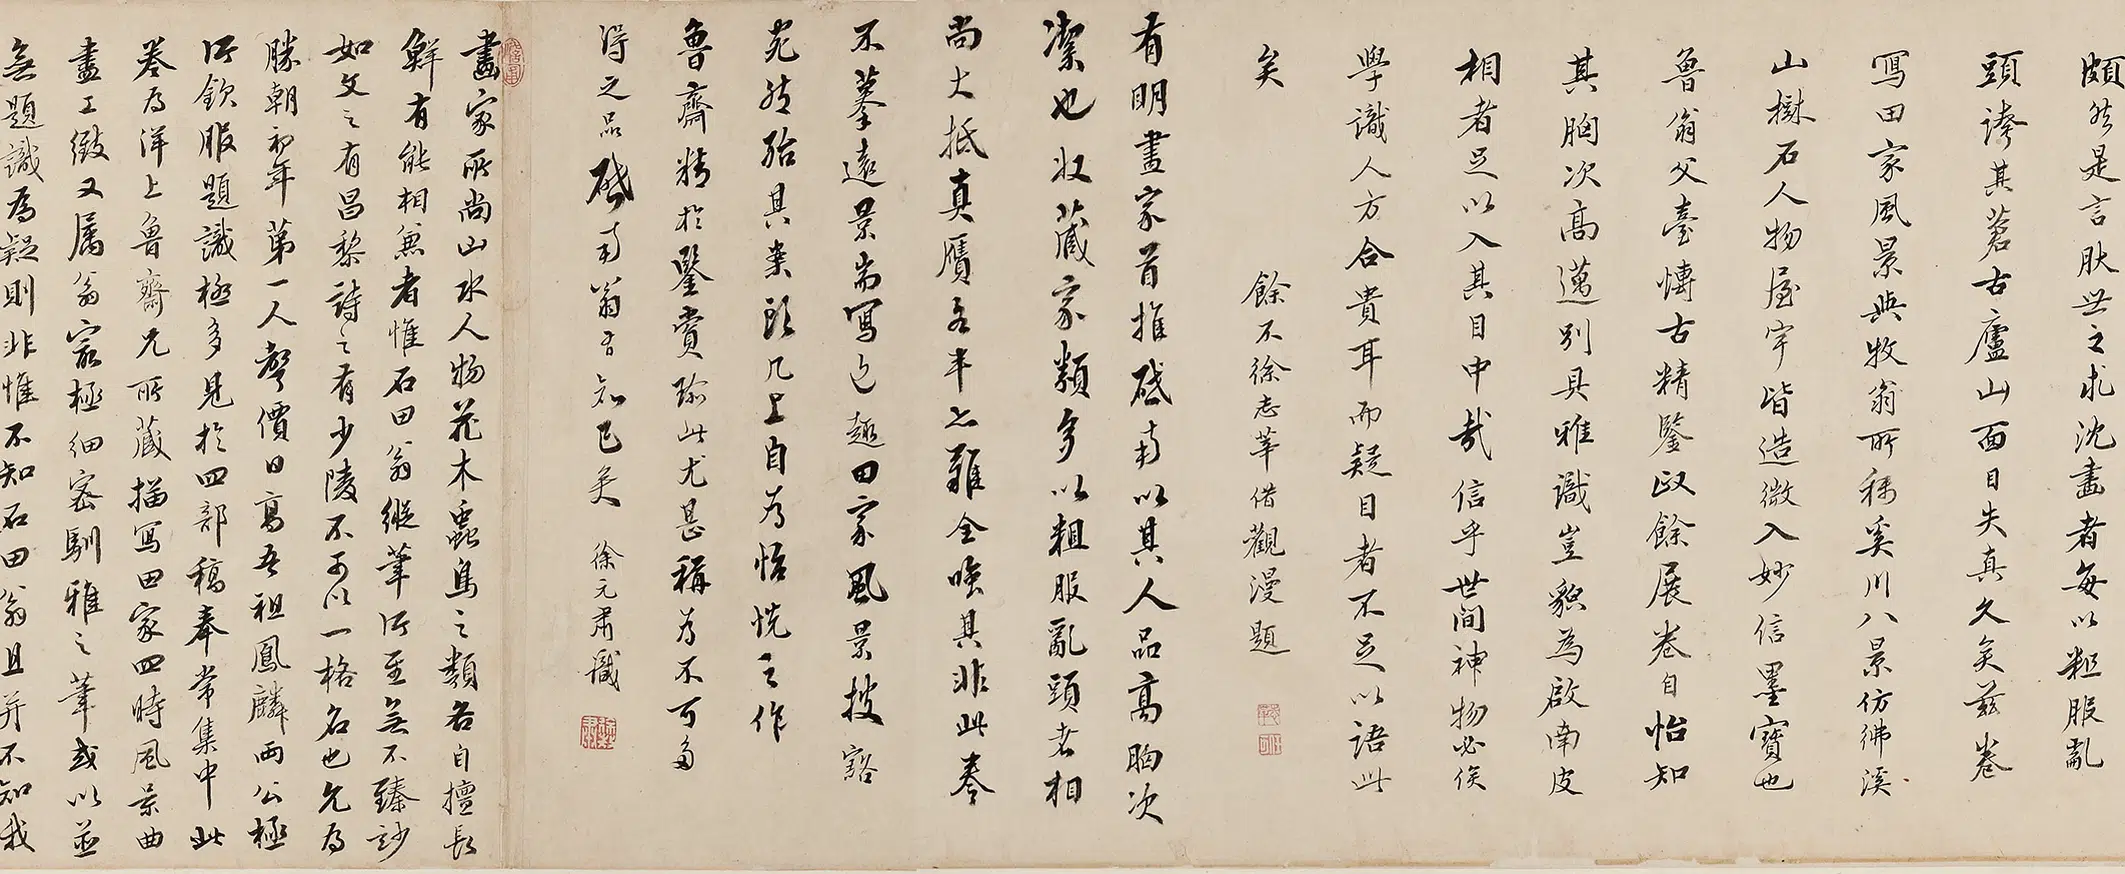 頗然是言肤世之求沈畫者每以粗服亂
頭誇其蒼古廬山面目失真久矣茲卷
寫田家風景與牧翁所稱奚川八景仿彿溪
山樹石人物屋宇皆造微入妙信墨寶也
魯翁父臺博古精鑒政餘展卷自怡知
其胸次高邁別具雅識豈貌為啟南皮
相者足以入其目中哉信乎世間神物必俟
學識人方合貴耳而疑目者不足以語此
矣
餘不徐志莘借觀漫題
有明畫家首推石田以其人品高胸次
潔也收藏家類多以粗服亂頭者相
尚大抵真贗各半之難全唉其非此卷
不摹遠景耑寫之趣田家風景披豁
宛然殆其案頭几上自為怡悅之作
魯齋精於鑒賞珍此尤甚稱為不可多
得之品石田翁有知己矣 徐元肅識
畫家所尚山水人物花木蟲鳥之類各自擅長
鮮有能相兼者惟石田翁縱筆所至無不臻妙
如文之有昌黎詩之有少陵不可以一格名也允為
勝朝初年第一人聲價日高吾祖鳳麟兩公極
所欽服題識極多見於四部稿奉常集中此
卷為洋上魯齋兄所藏描寫田家四時風景曲
盡工緻又属翁家極細密馴雅之筆或以並
無題識為疑則非惟不知石田翁且并不知我